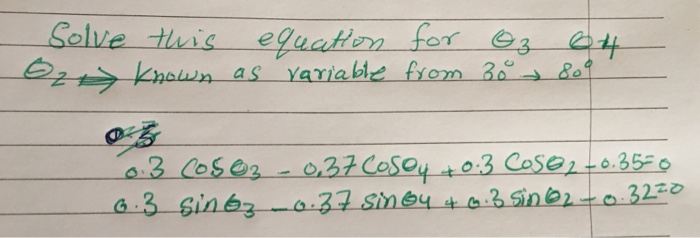 Solve this equation for θ3 θ4
θ2 ⇒ Known as variable from 30° → 80°
0.3 Cosθ3 - 0.37 Cosθ4 + 0.3 Cosθ2 - 0.35=0
0.3 sinθ3 - 0.37 sinθ4 + 0.3 sinθ2 - 0.32=0